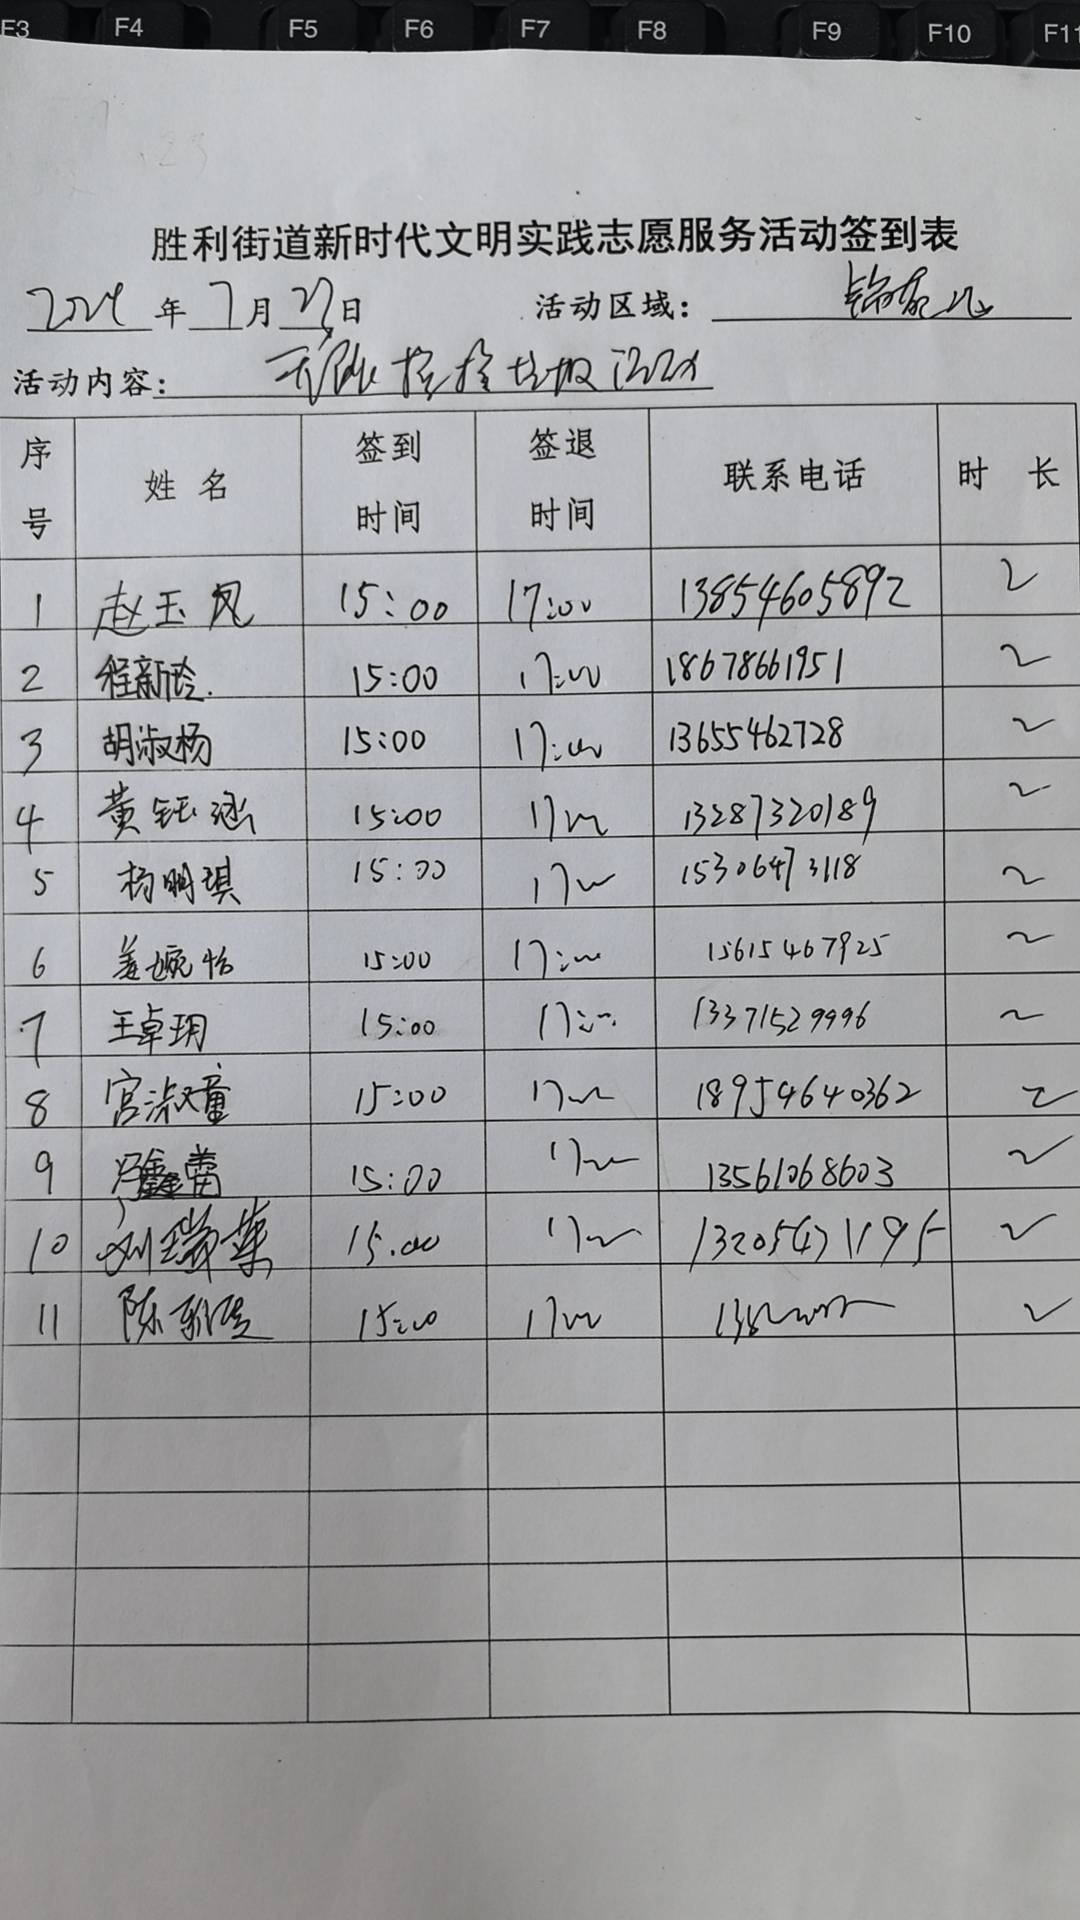 F3 F4 F5 F6 F7 F8 F9 F10 F11
胜利街道新时代文明实践志愿服务活动签到表
2024年7月27日 活动区域：
活动内容： 捡垃圾活动
序号 姓名 签到时间 签退时间 联系电话 时长
1 赵玉凤 15:00 17:00 13854605892 2
2 程新玲 15:00 17:00 18678661951 2
3 胡淑杨 15:00 17:00 13655462728 2
4 黄钰涵 15:00 17:00 13287320189 2
5 杨明琪 15:00 17:00 15306473118 2
6 姜婉怡 15:00 17:00 15615467925 2
7 王卓玥 15:00 17:00 13371529996 2
8 宫淑童 15:00 17:00 18954640362 2
9 冯鑫蕾 15:00 17:00 13561068603 2
10 刘瑞英 15:00 17:00 13205471195 2
11 陈 15:00 17:00 2